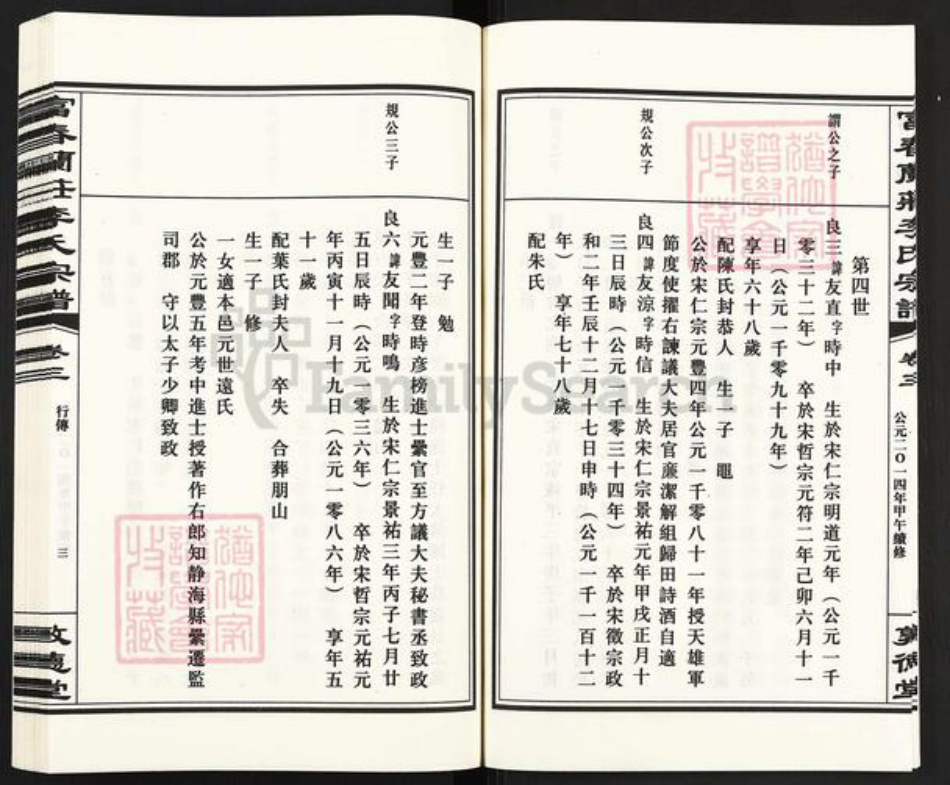 富春蘭莊李氏宗譜
卷三
公元二〇一四年甲午續修
敦德堂
謂公之子
規公次子
第四世
良三諱友直字時中 生於宋仁宗明道元年（公元一千
零三十二年） 卒於宋哲宗元符二年己卯六月十一
日（公元一千零九十九年）
享年六十八歲
配陳氏封恭人 生一子 颺
公於宋仁宗元豐四年公元一千零八十一年授天雄軍
節度使擢右諫議大夫居官亷潔解組歸田詩酒自適
良四諱友諒字時信 生於宋仁宗景祐元年甲戌正月十
三日辰時（公元一千零三十四年） 卒於宋徽宗政
和二年壬辰十二月十七日申時（公元一千一百十二
年） 享年七十八歲
配朱氏
規公三子
生一子 勉
元豐二年登時彦榜進士纍官至方議大夫秘書丞致政
良六諱友聞字時鳴 生於宋仁宗景祐三年丙子七月廿
五日辰時（公元一零三六年） 卒於宋哲宗元祐元
年丙寅十一月十九日（公元一零八六年） 享年五
十一歲
配葉氏封夫人 卒失 合葬朋山
生一子 修
一女適本邑元世遠氏
公於元豐五年考中進士授著作右郎知静海縣纍遷監
司郡 守以太子少卿致政
富春蘭莊李氏宗譜
卷三
行傳
三
敦德堂
FamilySearch